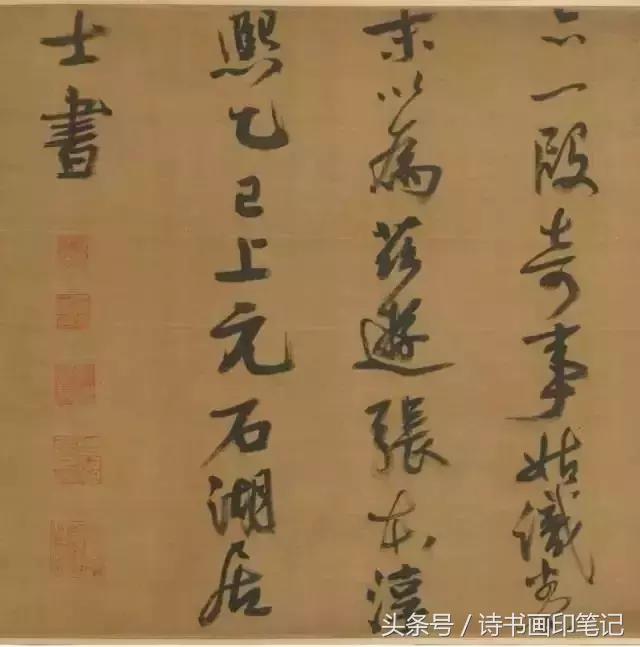 亦一段奇事姑識卷
末以為茲遊張本淳
熙乙巳上元石湖居
士書
头条号 / 诗书画印笔记